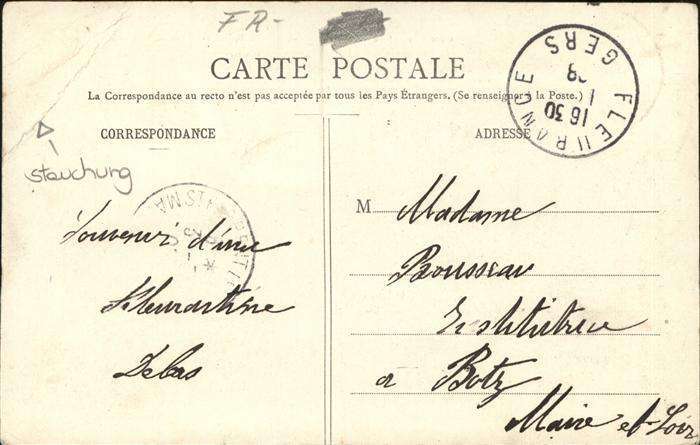 FR-
CARTE POSTALE
La Correspondance au recto n'est pas acceptée par tous les Pays Étrangers. (Se renseigner à la Poste.)
CORRESPONDANCE
ADRESSE
FLEURANCE
16 30
GERS
stauchung
Souvenir d'une
Fleurantine
M Madame
Rousseau
Institutrice
à Botz
Maine et Loir